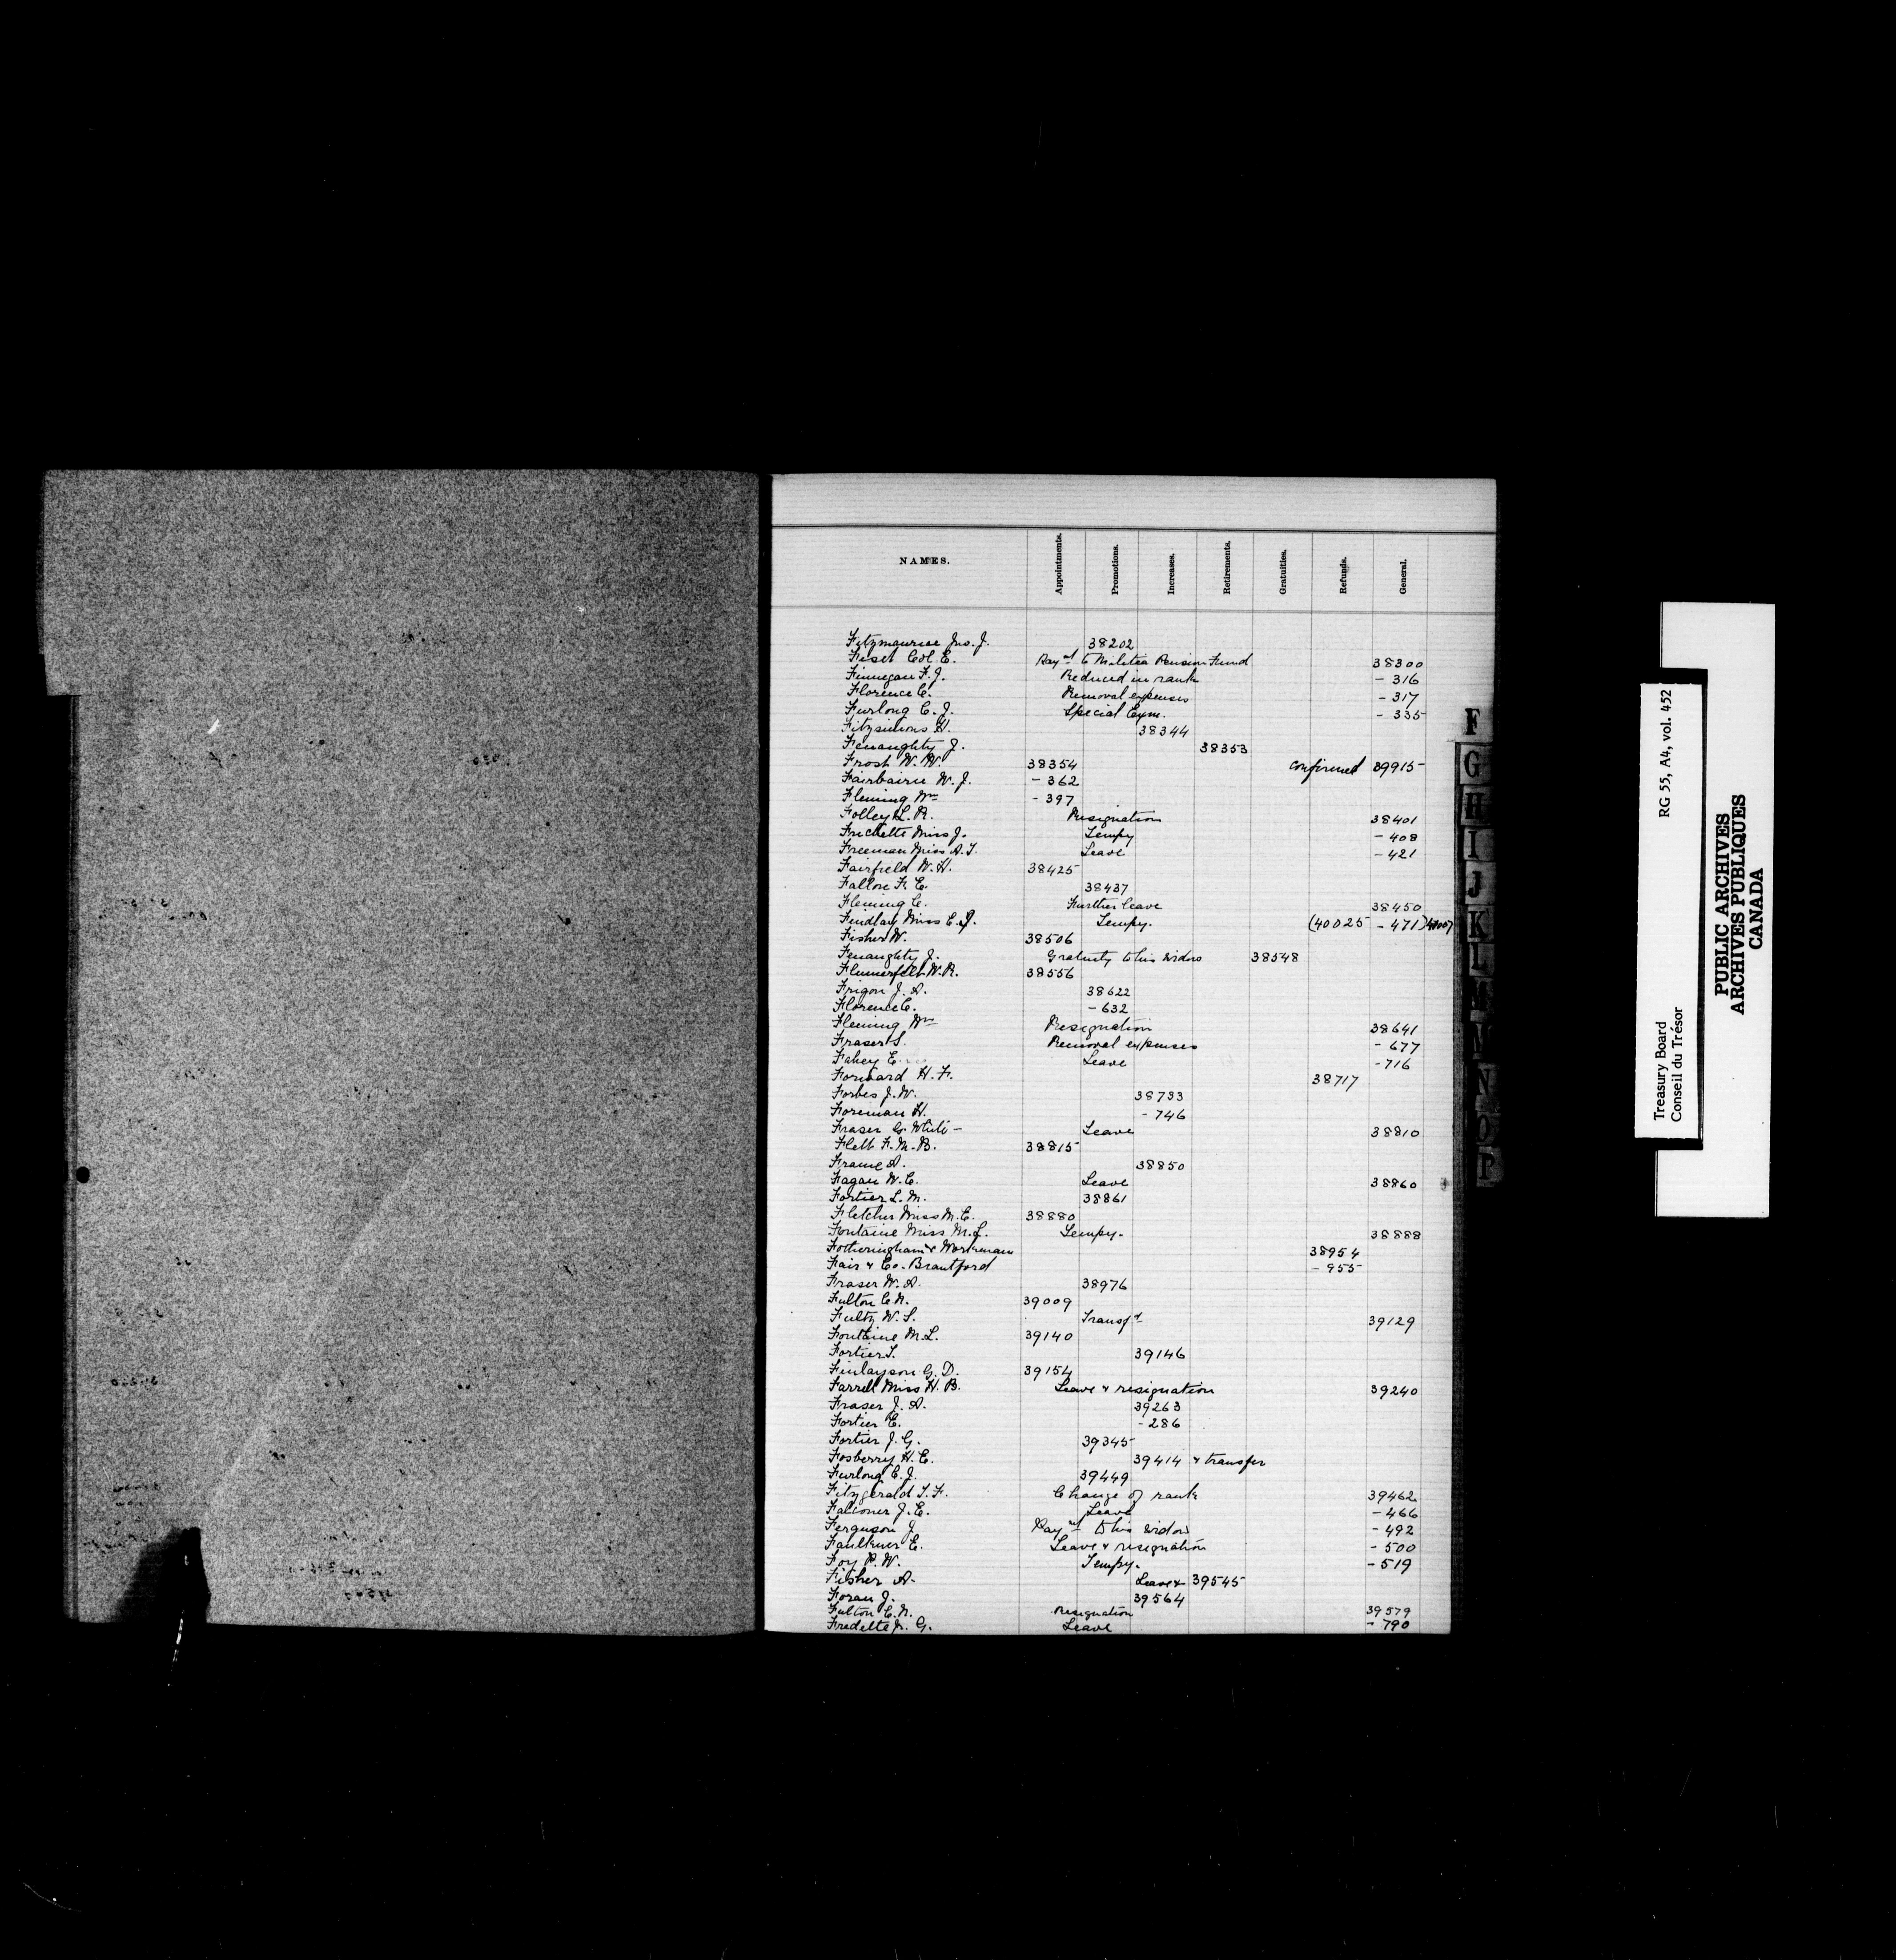 NAMES. Appointments. Promotions. Increases. Retirements. Gratuities. Refunds. General.
Fitzmaurice Jno. J. 38202
Fiset Col. E. Pay^t to Militia Pension Fund 38300
Finnegan F. J. Reduced in rank - 316
Florence C. Removal expenses - 317
Furlong C. J. Special Exam. - 335
Fitzsimons H. 38344
Fenaughty J. 38353
Frost W. W. 38354 confirmed 39915
Fairbairn W. J. - 362
Fleming Wm - 397
Folley L. R. Resignation 38401
Frichette Miss J. Tempy - 408
Freeman Miss A. T. Leave - 421
Fairfield W. H. 38425
Fallon F. E. 38437
Fleming C. Further leave 38450
Findlay Miss E. J. Tempy. (40025 - 471)
Fisher W. 38506
Fenaughty J. Gratuity to his widow 38548
Flumerfelt W. R. 38556
Frigon J. A. 38622
Florence C. - 632
Fleming Wm Resignation 38641
Fraser S. Removal expenses - 677
Fahey E. Leave - 716
Forward H. F. 38717
Forbes J. W. 38733
Foreman H. - 746
Fraser G. White - Leave 38810
Flett F. M. B. 38815
Frame A. 38850
Fagan W. C. Leave 38860
Fortier L. M. 38861
Fletcher Miss M. C. 38880
Fontaine Miss M. L. Tempy. 38888
Fotheringham & Workman 38954
Fair & Co. Brantford - 955
Fraser W. A. 38976
Fulton C. N. 39009
Fultz W. S. Transf^d 39129
Fontaine M. L. 39140
Fortier S. 39146
Finlayson G. D. 39154
Farrell Miss H. B. Leave & resignation 39240
Fraser J. A. 39263
Fortier E. - 286
Fortier J. G. 39345
Fosberry H. E. 39414 & transfer
Furlong C. J. 39449
Fitzgerald T. F. Change of rank 39462
Falconer J. E. Leave - 466
Ferguson J. Pay^t to his widow - 492
Faulkner E. Leave & resignation - 500
Foy P. W. Tempy. - 519
Fisher A. Leave & 39545
Foran J. 39564
Fulton C. N. Resignation 39579
Fredette G. Leave - 790
F
G
H
I
J
K
L
N
O
P
Treasury Board RG 55, A4, vol. 452
Conseil du Trésor
PUBLIC ARCHIVES
ARCHIVES PUBLIQUES
CANADA